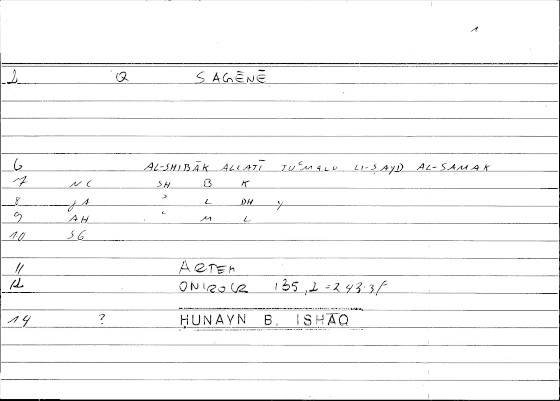 1
2 Q SAGĒNĒ
6 AL-SHIBĀK ALLATĪ TUʿMALU LI-ṢAYD AL-SAMAK
7 NC SH B K
8 JA ʾ L DH Y
9 AH ʿ M L
10 SG
11 ARTEM
12 ONIROCR 135,2 = 243.3f
14 ? ḤUNAYN B. ISḤĀQ